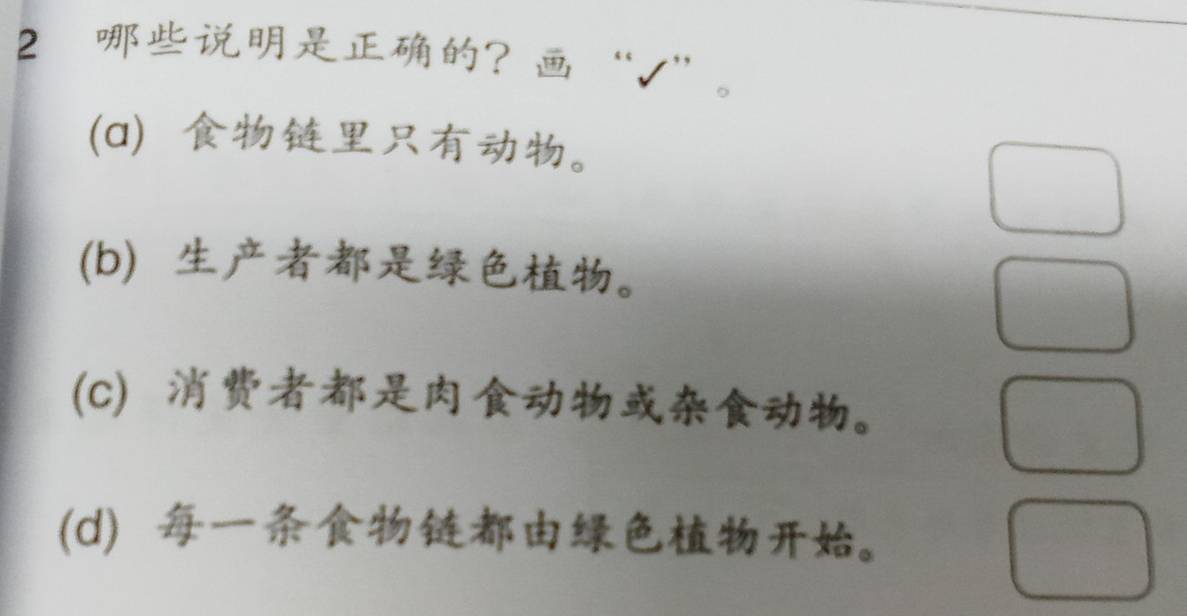 2 哪些说明是正确的？画 “✓”。
(a) 食物链里只有动物。
(b) 生产者都是绿色植物。
(c) 消费者都是肉食动物或杂食动物。
(d) 每一条食物链都由绿色植物开始。